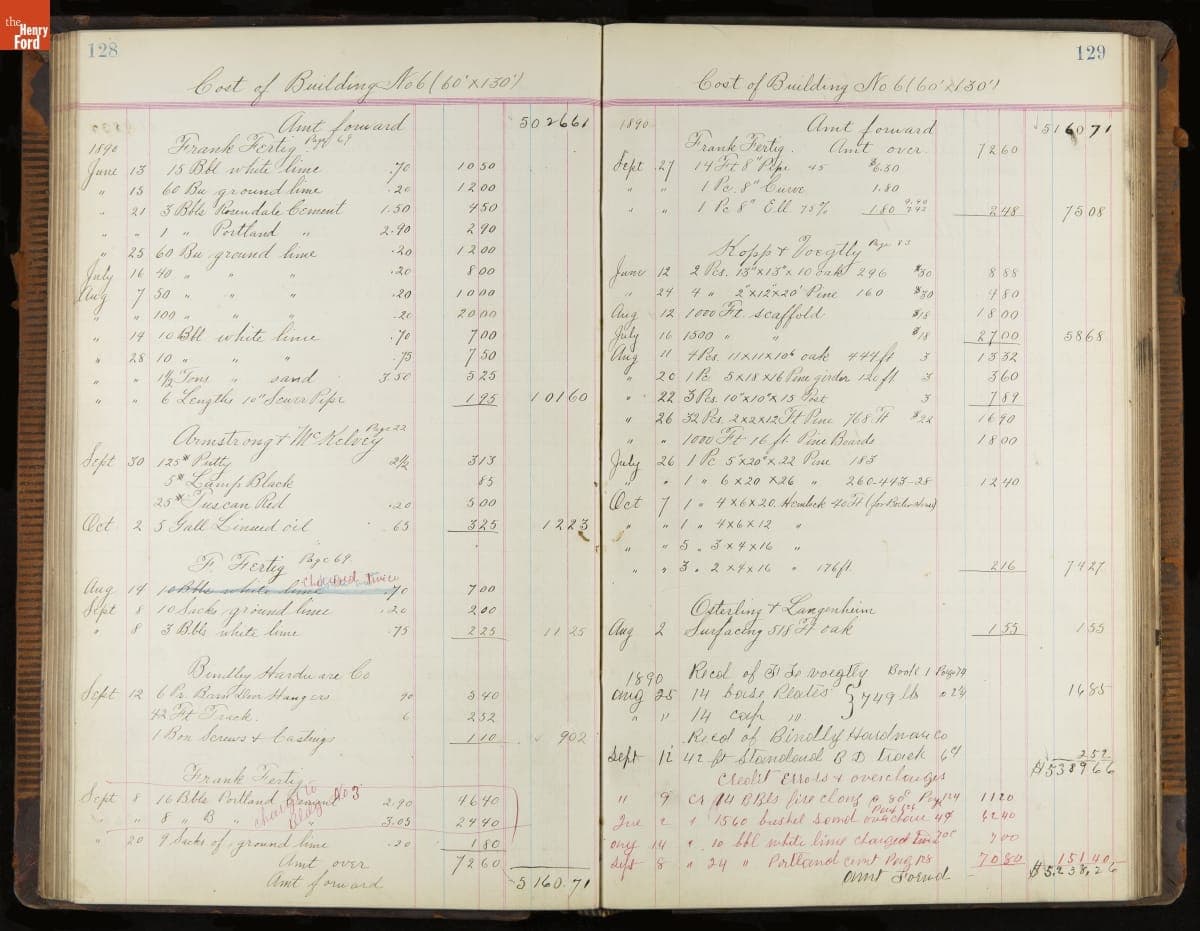 the
Henry
Ford
128
Cost of Building No 6 (60' x 130')
Amt forward 5026 61
1890 Frank Fertig Page 69
June 13 15 Bbl white lime .70 10 50
" 15 60 Bu ground lime .20 12 00
" 21 3 Bbls Rosendale Cement 1.50 4 50
" " 1 " Portland " 2.90 2 90
" 25 60 Bu ground lime .20 12 00
July 16 40 " " " .20 8 00
Aug 7 50 " " " .20 10 00
" " 100 " " " .20 20 00
" 14 10 Bbl white lime .70 7 00
" 28 10 " " " .75 7 50
" " 1 1/2 Tons " sand 3.50 5 25
" " 6 Lengths 10" Sewer Pipe 1 95 101 60
Armstrong & McKelvey Page 22
Sept 30 125# Putty 2 1/2 3 13
5# Lamp Black 85
25# Tuscan Red .20 5 00
Oct 2 5 Gall Linseed oil .65 3 25 12 23
F. Fertig Page 69
charged twice
Aug 14 10 Bbls white lime .70 7 00
Sept 8 10 Sacks ground lime .20 2 00
" 8 3 Bbls white lime .75 2 25 11 25
Bindley Hardware Co
Sept 12 6 Pr. Barn Door Hangers 90 5 40
42 Ft Track 6 2 52
1 Box Screws & Castings 1 10 9 02
Frank Fertig
Sept 8 16 Bbls Portland Cement 2.90 46 40
" " 8 " B " " 3.05 24 40
charge to Bldg No 3
" 20 9 Sacks of ground lime .20 1 80
Amt over 72 60
Amt forward 5160.71
129
Cost of Building No 6 (60' x 130')
1890 Amt forward 5160 71
Frank Fertig. Amt over 72 60
Sept 27 14 Ft 8" Pipe 45 $6.30
" " 1 Pc. 8" Curve 1.80
" " 1 Pc 8" Ell 75% 1.80 9.90 7.42 2 48 75 08
Kopp & Voegtly Page 83
June 12 2 Pcs. 13" x 13" x 10 oak 296 $30 8 88
" 24 4 " 2" x 12" x 20' Pine 160 $30 4 80
Aug 12 1000 Ft. scaffold $18 18 00
July 16 1500 " " $18 27 00 58 68
Aug 11 4 Pcs. 11 x 11 x 10 6 oak 444 ft 3 13 32
" 20 1 Pc. 5 x 18 x 16 Pine girder 120 ft 3 3 60
" 22 3 Pcs. 10" x 10" x 15 Post 3 7 89
" 26 32 Pcs. 2 x 2 x 12 Ft Pine 768 Ft $22 16 90
" " 1000 Ft 16 ft. Pine Boards 18 00
July 26 1 Pc 5" x 20" x 22 Pine 183
" " 1 " 6 x 20 x 26 " 260-443-28 12 40
Oct 7 1 " 4 x 6 x 20. Hemlock 40 Ft (for Boiler House)
" " 1 " 4 x 6 x 12 "
" " 5 " 3 x 4 x 16 "
" " 3 " 2 x 4 x 16 " 176 ft 2 16 74 27
Osterling & Langenheim
Aug 2 Surfacing 518 Ft oak 1 55 1 55
1890 Recd of voegtly Book 1 Page 79
Aug 25 14 base Plates } 749 lb 16 85
" " 14 cap "
Recd of Bindly Hardware Co
Sept 12 42 ft Standard B D track 6¢ 2 52
$5389 66
Credit Errors & overcharges
" 9 cr 14 BBls fire clay @ 80¢ Page 124 11 20
June 2 " 1560 bushel sand overcharge 4¢ Page 124 62 40
Aug 14 " 10 bbl white lime charged twice 70¢ 7 00
Sept 8 " 24 " Portland cemt Page 128 70 80 151 40
Amt Forwd $5,238.26